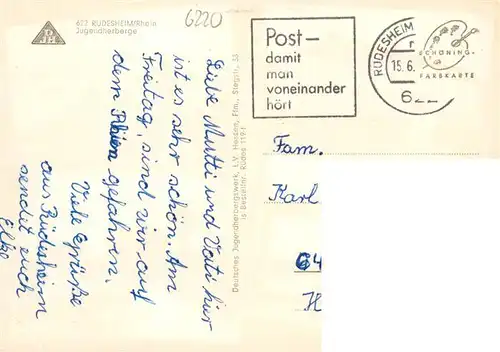 622 RÜDESHEIM/Rhein
Jugendherberge
6220
Post—
damit
man
voneinander
hört
RÜDESHEIM
15.6.
622
SCHÖNING
FARBKARTE
Liebe Mutti und Vati hir
ist es sehr schön. Am
Freitag sind wir auf
dem Rhien gefahren.
Viele Grüße
aus Rüdesheim
sendet euch
Elke
Deutsches Jugendherbergswerk, L.V. Hessen, Ffm., Stegstr. 33
Bestellnr. Rüdes 1191
Fam.
Karl
64
H